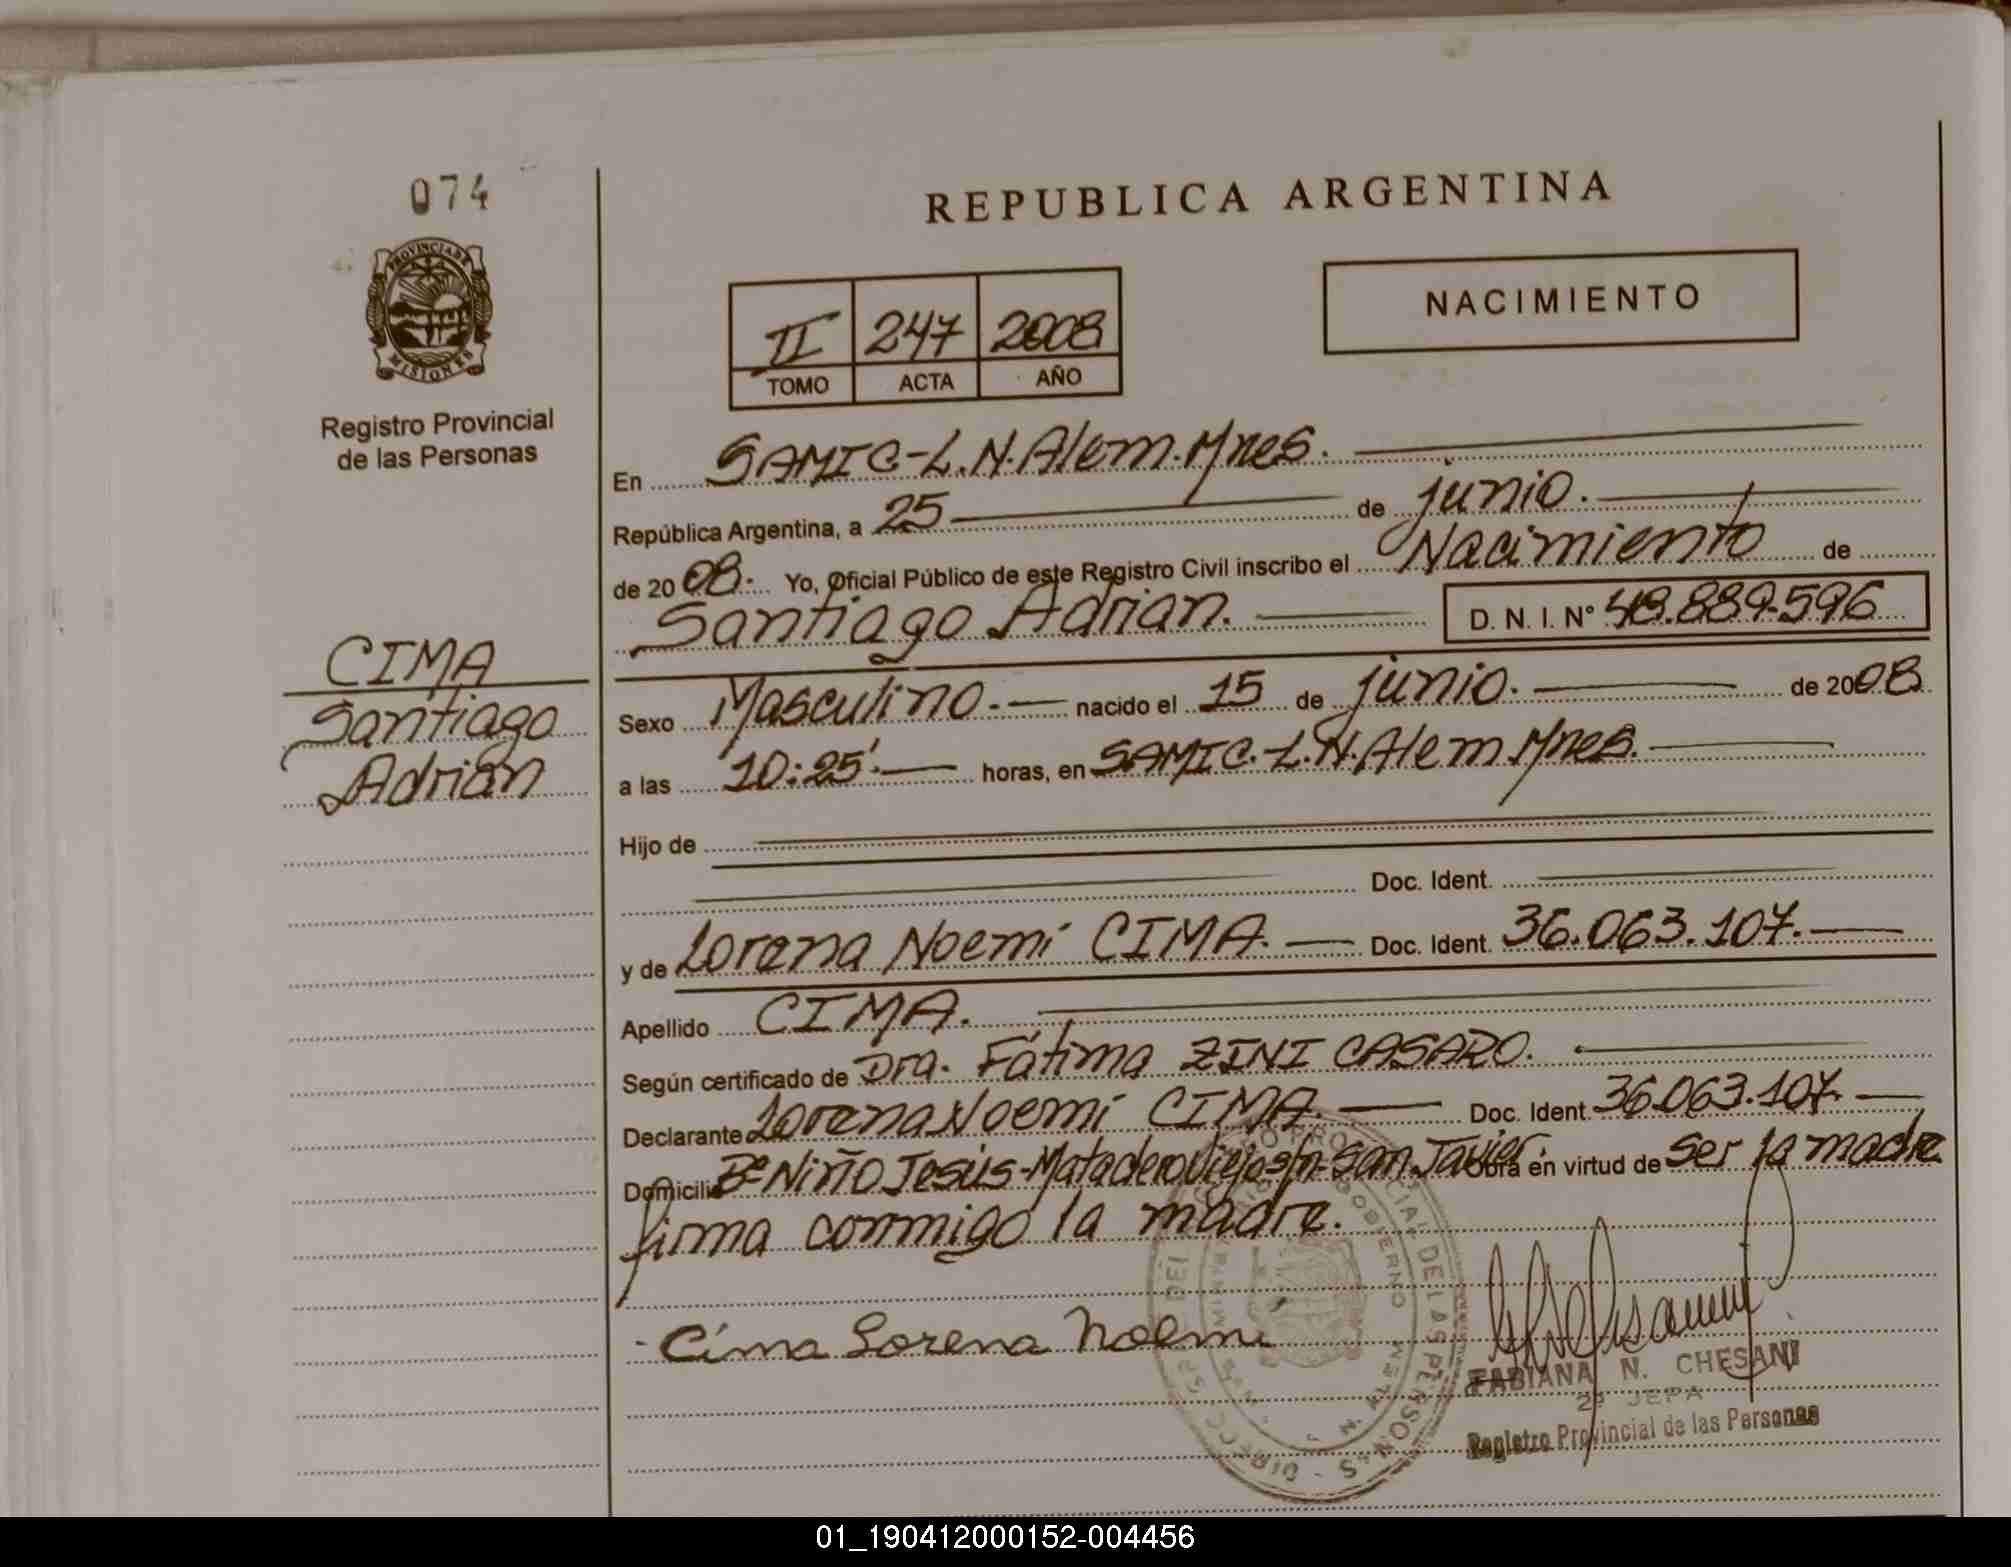 074
PROVINCIA DE
MISIONES
Registro Provincial
de las Personas
REPUBLICA ARGENTINA
II 247 2008
TOMO ACTA AÑO
NACIMIENTO
En SAMIC-L.N.Alem.Mnes.
República Argentina, a 25 de junio.
de 2008. Yo, Oficial Público de este Registro Civil inscribo el Nacimiento de
Santiago Adrian. D. N. I. Nº 48.889.596
CIMA
Santiago
Adrián
Sexo Masculino. nacido el 15 de junio. de 2008
a las 10:25'. horas, en SAMIC.-L.N.Alem Mnes.
Hijo de
Doc. Ident.
y de Lorena Noemí CIMA. Doc. Ident. 36.063.107.
Apellido CIMA.
Según certificado de Dra. Fátima ZINI CASARO.
Declarante Lorena Noemí CIMA. Doc. Ident. 36.063.107.
Domicilio Bº Niño Jesús-Matadero Viejo s/n-San Javier Obra en virtud de ser la madre
firma conmigo la madre.
Cima Lorena Noemi
FABIANA N. CHESANI
2ª JEFA
Registro Provincial de las Personas
01_190412000152-004456